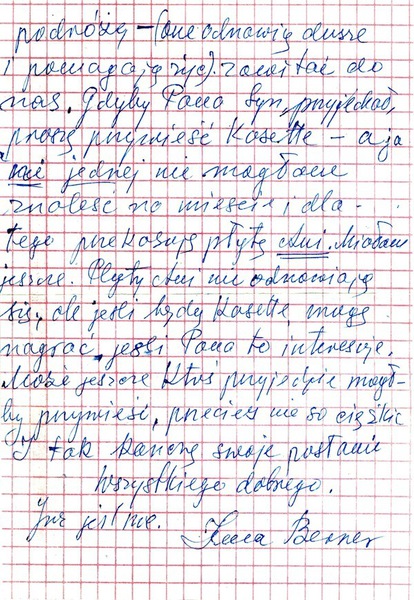 podróżą – (one odnowią dusze
i pomagają żyć). zawitać do
nas. Gdyby Pana syn przyjechał,
proszę przynieść Kasette – a ja
ni jednej nie mogłam
znaleść na mieście, i dla-
tego przekazuję płytę Ani. Miałam
jeszcze. Płyty Ani nie odnowiają
się, ale jeśli będą Kasette, mogę
nagrać, jeśli Pana to interesuje.
Może jeszcze Ktoś przyjedzie mogł-
by przynieść, przecież nie są ciężkie
I tak kończę swoje posłanie
Wszystkiego dobrego.
Berner